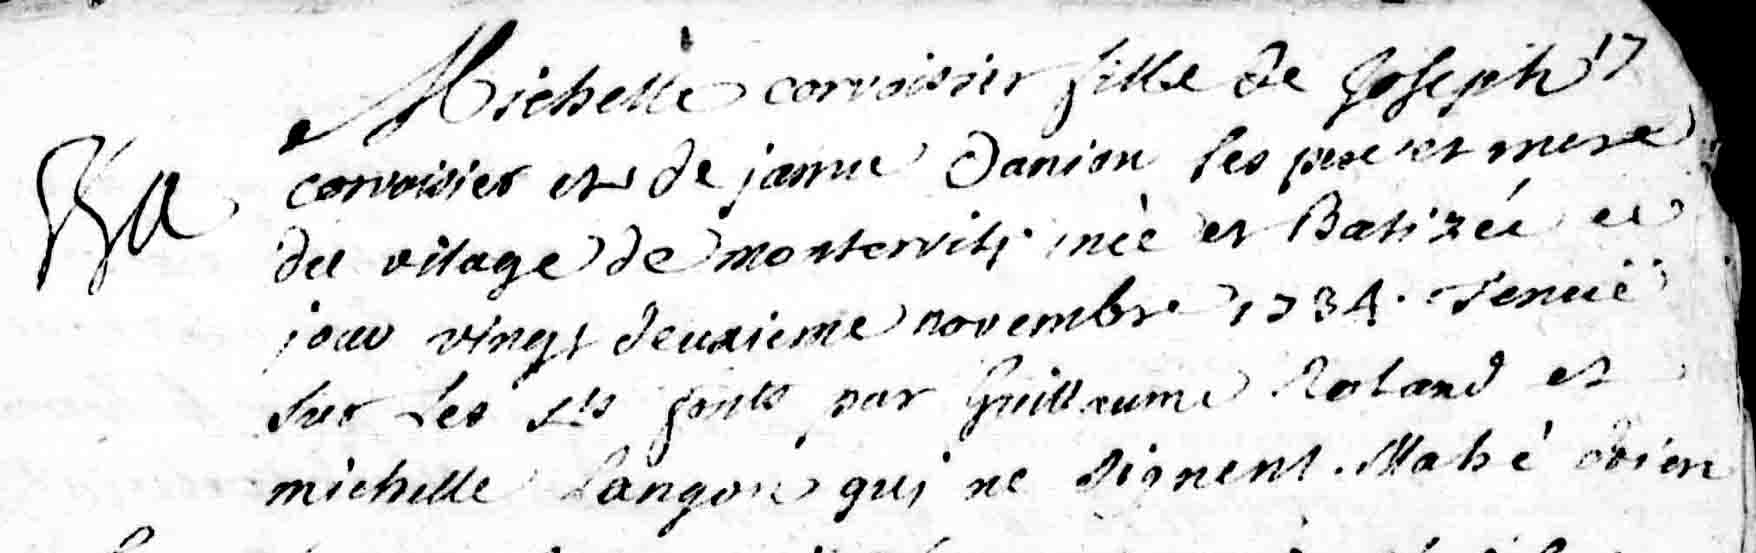 Michelle corvoisier fille de Joseph 17
corvoisier et de janne Danion ses pere et mere
du vilage de monterviti née et Batizée ce
jour vingt deuxieme novembre 1734. tenuë
sur Les sts fonts par Guillaume Roland et
michelle Langon qui ne signent. Mahé